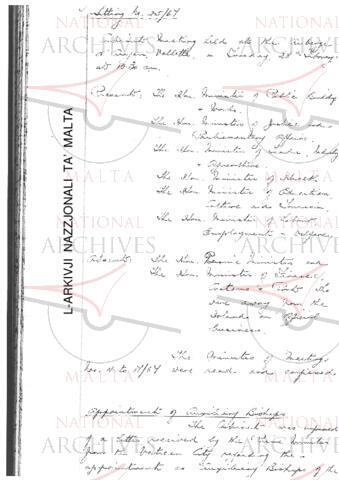 Sitting No. 25/67
Cabinet Meeting held at the Auberge
d'Aragon, Valletta, on Tuesday, 28 February
at 10.30 am.
Present: The Hon. Minister of Public Building
& Works.
The Hon. Minister of Justice and
Parliamentary Affairs.
The Hon. Minister of Trade, Industry
& Agriculture.
The Hon. Minister of Health
The Hon. Minister of Education
Culture and Tourism.
The Hon. Minister of Labour,
Employment & Welfare.
Absent: The Hon. Prime Minister and
The Hon. Minister of Finance,
Customs & Port. The
were away from the
Islands on official
business.
The Minutes of Meetings
Nos. to /67 were read and confirmed.
Appointment of Auxiliary Bishops
The Cabinet was informed
of a letter received by the Prime Minister
from the Vatican City regarding the
appointment as Auxiliary Bishops of the
L-ARKIVJI NAZZJONALI TA' MALTA
NATIONAL
ARCHIVES
MALTA